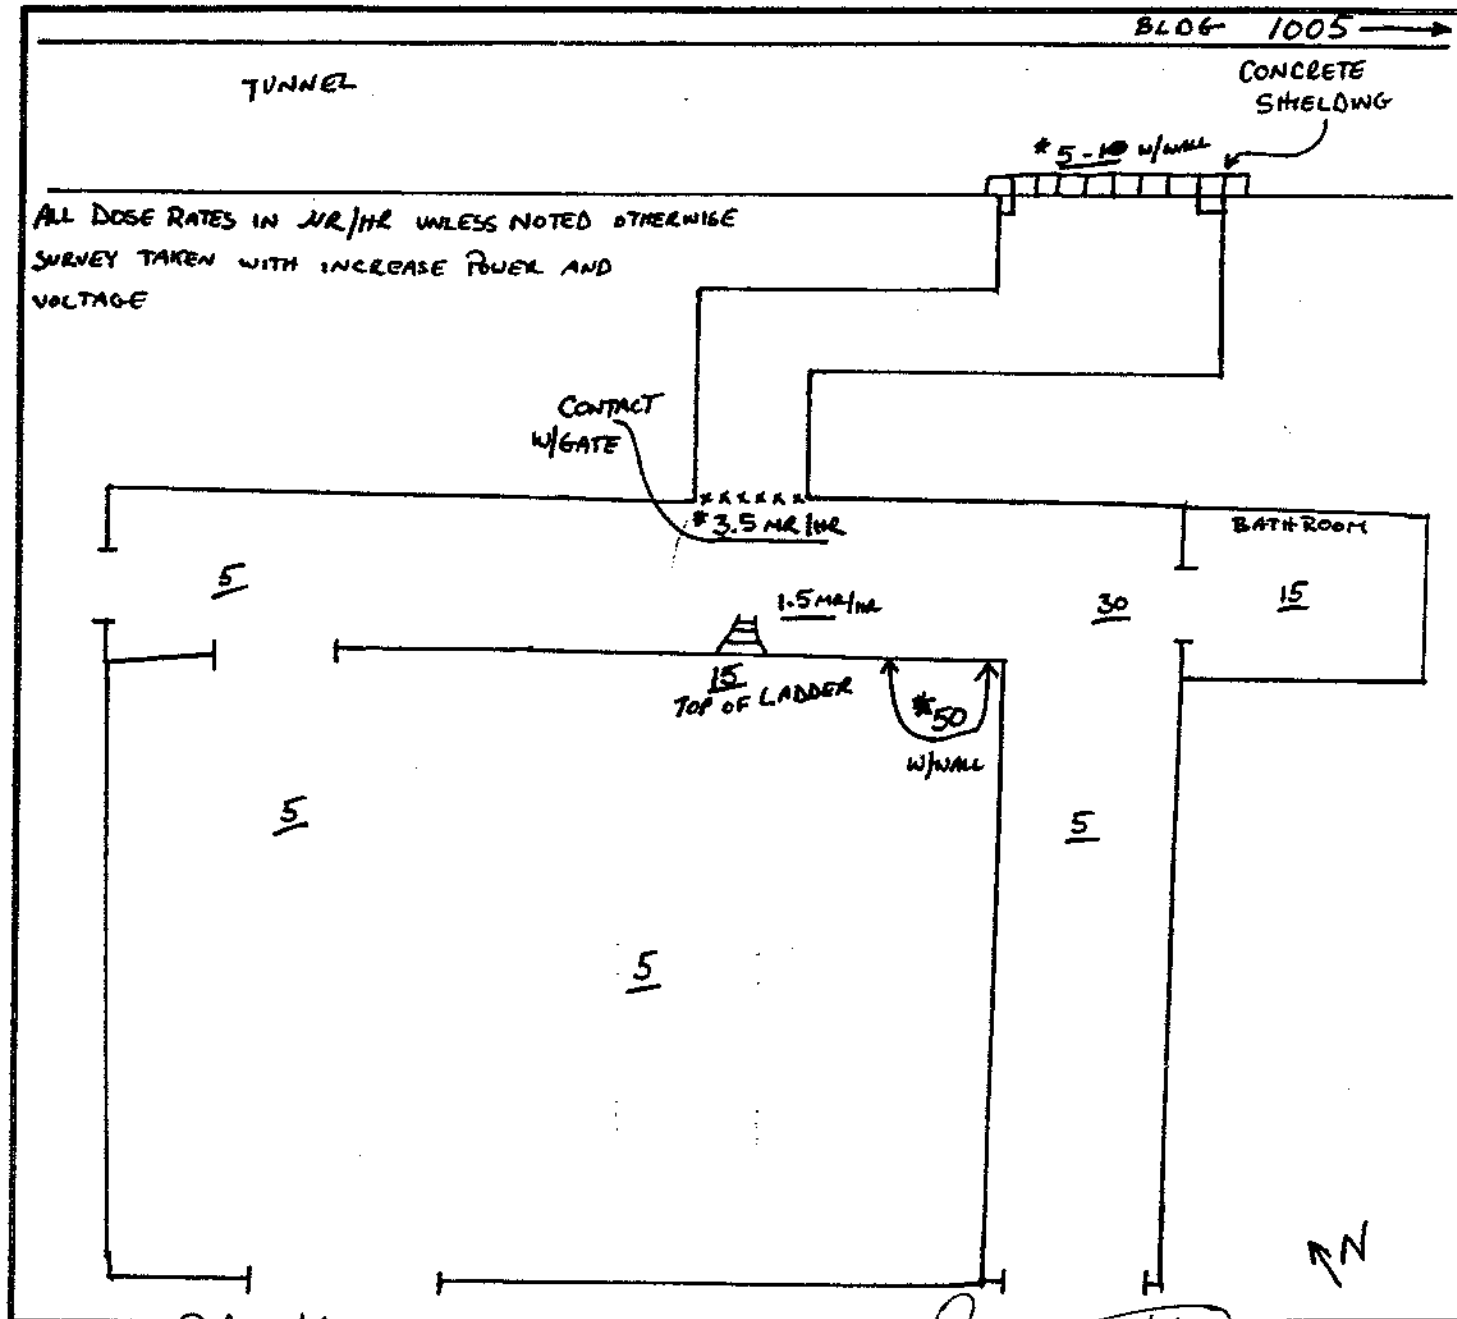 BLDG 1005
TUNNEL
CONCRETE
SHIELDING
* 5-10 W/WALL
ALL DOSE RATES IN µR/HR UNLESS NOTED OTHERWISE
SURVEY TAKEN WITH INCREASE POWER AND
VOLTAGE
CONTACT
W/GATE
x x x x x x
* 3.5 MR/HR
BATHROOM
5
1.5 MR/HR
30
15
15
TOP OF LADDER
*50
W/WALL
5
5
5
N